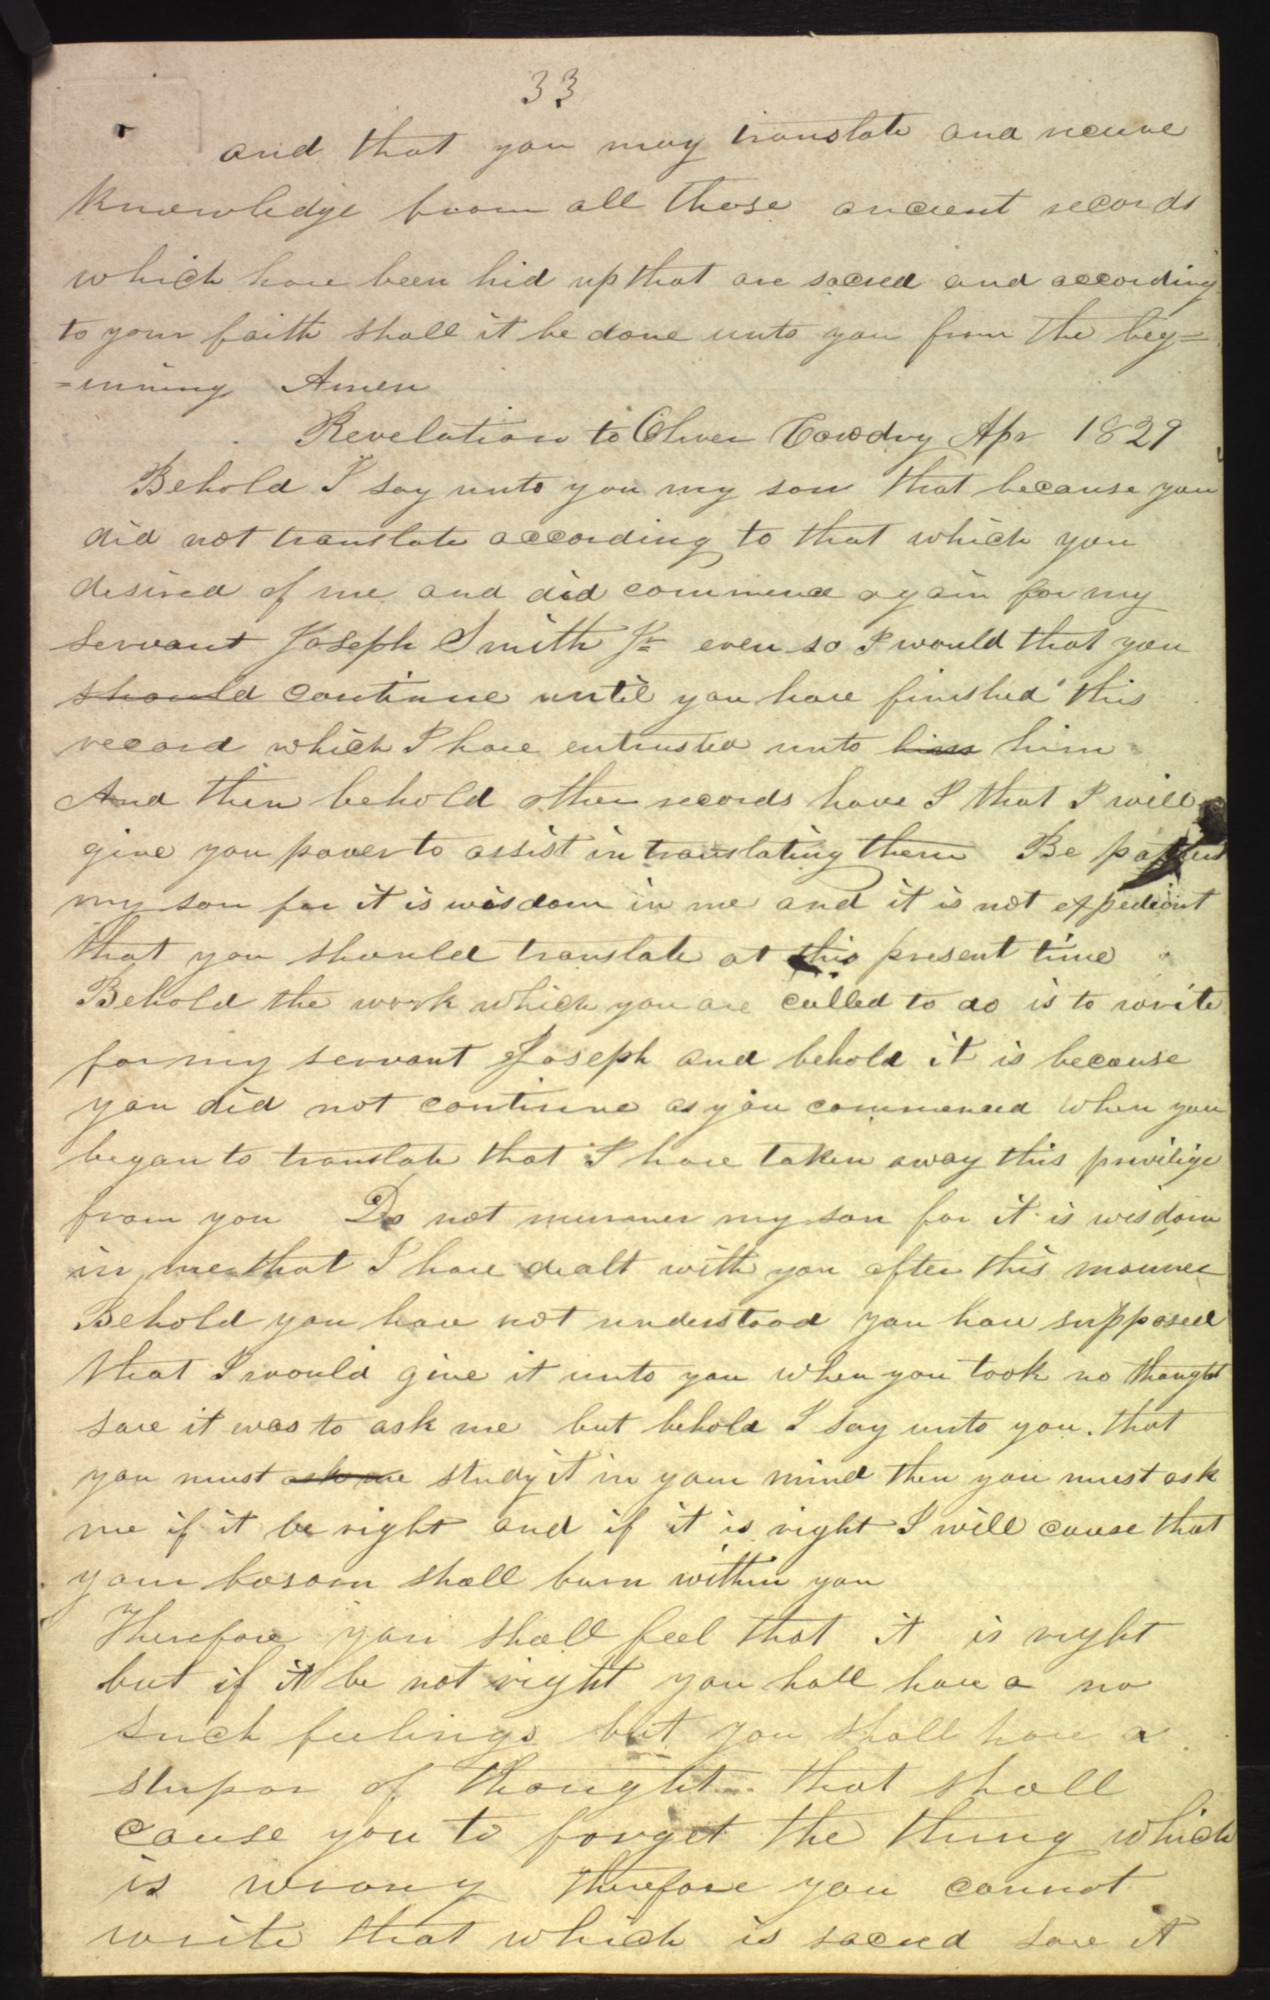 33
and that you may translate and receive
knowledge from all those ancient records
which have been hid up that are sacred and according
to your faith shall it be done unto you from the beg=
=inning Amen
Revelation to Oliver Cowdry Apr 1829
Behold I say unto you my son that because you
did not translate according to that which you
desired of me and did commence again for my
servant Joseph Smith Jr even so I would that you
should continue until you have finished this
record which I have entrusted unto him him
And then behold other records have I that I will
give you power to assist in translating them Be patient
my son for it is wisdom in me and it is not expedient
that you should translate at this present time
Behold the work which you are called to do is to write
for my servant Joseph and behold it is because
you did not continue as you commenced when you
began to translate that I have taken away this privilige
from you Do not murmer my son for it is wisdom
in me that I have dealt with you after this manner
Behold you have not understood you have supposed
that I would give it unto you when you took no thought
save it was to ask me but behold I say unto you that
you must ask me study it in your mind then you must ask
me if it be right and if it is right I will cause that
your bosom shall burn within you
Therefore you shall feel that it is right
but if it be not right you hall have a no
such feelings but you shall have a
stupor of thought that shall
cause you to forget the thing which
is wrong therefore you cannot
write that which is sacred save it